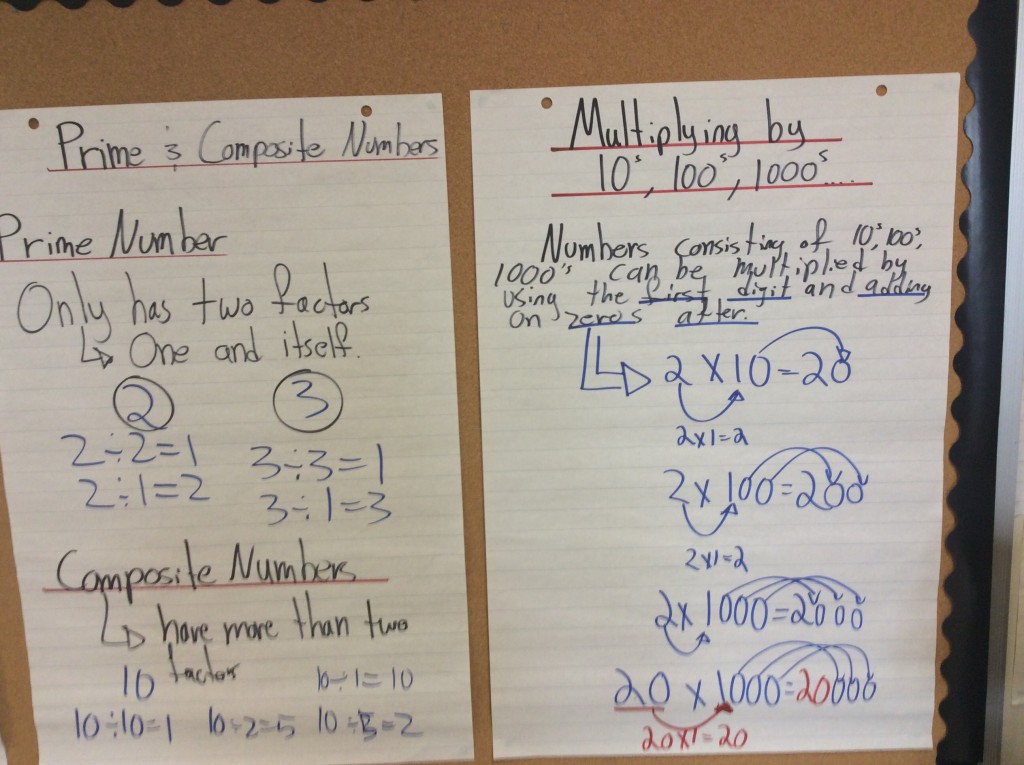 Prime & Composite Numbers
Prime Number
Only has two factors
One and itself.
2 3
2÷2=1 3÷3=1
2÷1=2 3÷1=3
Composite Numbers
have more than two
factors
10 10÷1=10
10÷10=1 10÷2=5 10÷5=2
Multiplying by
10s, 100s, 1000s....
Numbers consisting of 10s, 100s,
1000's can be multiplied by
using the first digit and adding
on zeros after.
2 x 10=20
2x1=2
2 x 100=200
2x1=2
2x 1000=2000
20 x 1000=20000
20x1=20